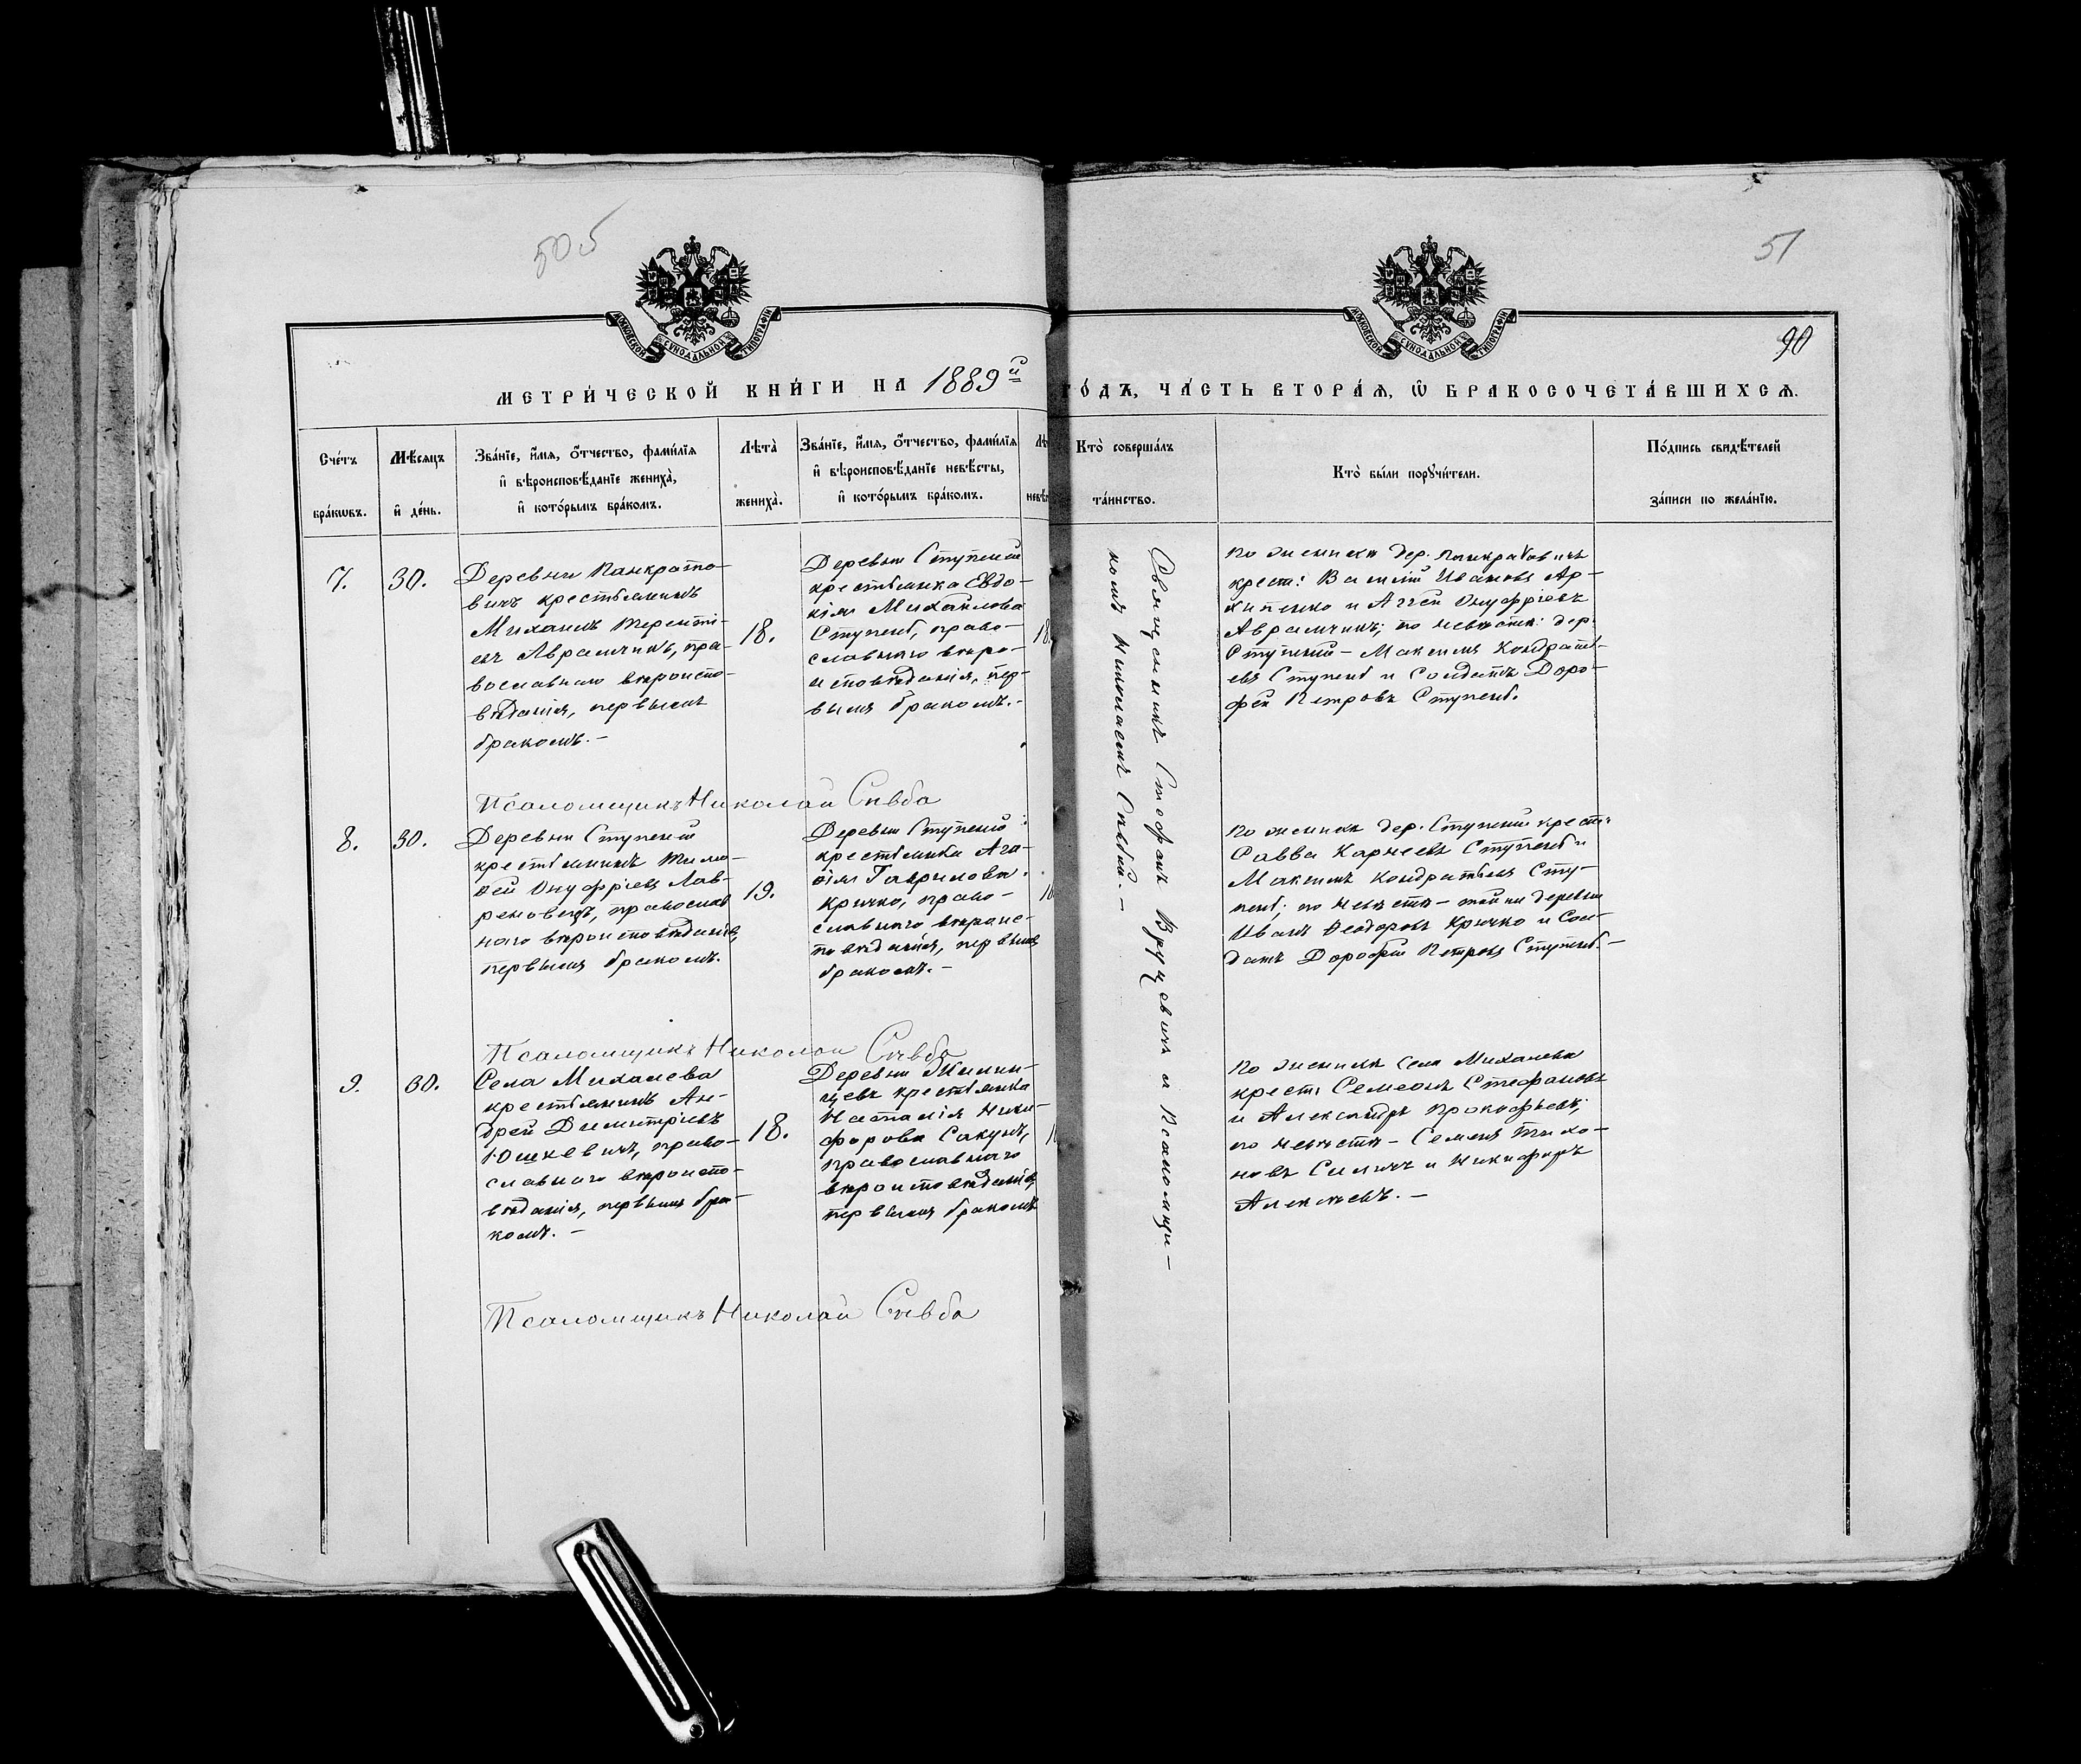 505
51
90
МОСКОВСКОЙ СѴНОДАЛЬНОЙ ТИПОГРАФІИ
МОСКОВСКОЙ СѴНОДАЛЬНОЙ ТИПОГРАФІИ
МЕТРИ́ЧЕСКОЙ КНИ́ГИ НА 1889й ГО́ДЪ, ЧА́СТЬ ВТОРА́Я, Ѡ҆ БРАКОСОЧЕТА́ВШИХСЯ.
Сче́тъ
бра́кѡвъ.
Мѣ́сяцъ
и҆ де́нь.
Зва́нїе, и҆́мя, ѻ҆́тчество, фами́лїя
и҆ вѣроисповѣ́данїе жениха̀,
и҆ кото́рымъ бра́комъ.
Лѣта̀
жениха̀.
Зва́нїе, и҆́мя, ѻ҆́тчество, фами́лїя
и҆ вѣроисповѣ́данїе невѣ́сты,
и҆ кото́рымъ бра́комъ.
Кто̀ соверша́лъ
та́инство.
Кто̀ бы́ли порꙋчи́тели.
По́дпись свидѣ́телей
за́писи по жела́нїю.
7.
30.
Деревни Панкрато-
вичъ крестьянинъ
Михаилъ Теренті-
евъ Аврамчикъ, пра-
вославнаго вѣроиспо-
вѣданія, первымъ
бракомъ. –
18.
Деревни Ступеній
крестьянка Евдо-
кія Михайлова
Ступень, право-
славнаго вѣро-
исповѣданія, пер-
вымъ бракомъ. –
18
Священникъ Стефанъ Вруцевичъ и Псаломщи-
комъ Николаемъ Спѣвой. –
По женихѣ дер. Панкратовичъ
крест: Василій Ивановъ Ар-
хипенко и Аггей Онуфріевъ
Аврамчикъ; по невѣстѣ: дер.
Ступеній – Максимъ Кондрать-
евъ Ступень и Солдатъ Доро-
фей Петровъ Ступень.
Псаломщикъ Николай Спѣва
8.
30.
Деревни Ступеній
крестьянинъ Тимо-
ѳей Онуфріевъ Лав-
реновецъ, православ
наго вѣроисповѣданія,
первымъ бракомъ.
19.
Деревни Ступеній
крестьянка Ага-
ѳія Гаврилова
Кричко, право-
славнаго вѣроис-
повѣданія, первымъ
бракомъ. –
По женихѣ дер. Ступеній крест:
Савва Карнеевъ Ступень и
Максимъ Кондратьевъ Сту-
пень; по невѣстѣ – той же деревни
Иванъ Ѳеодоровъ Кричко и Сол-
датъ Дорофей Петровъ Ступень. –
Псаломщикъ Николай Спѣва
9.
30.
Села Михалева
крестьянинъ Ан-
дрей Димитріевъ
Юшкевичъ, право-
славнаго вѣроиспо-
вѣданія, первымъ бра-
комъ. –
18.
крестьянка
Наталія Ники-
форова Сакунъ,
православнаго
вѣроисповѣданія,
первымъ бракомъ
По женихѣ Села Михалева
крест: Семеонъ Стефановъ
и Александръ Прокофьевъ;
по невѣстѣ – Семенъ Тихо-
новъ Силичъ и Никифоръ
Алексѣевъ. –
Псаломщикъ Николай Спѣва